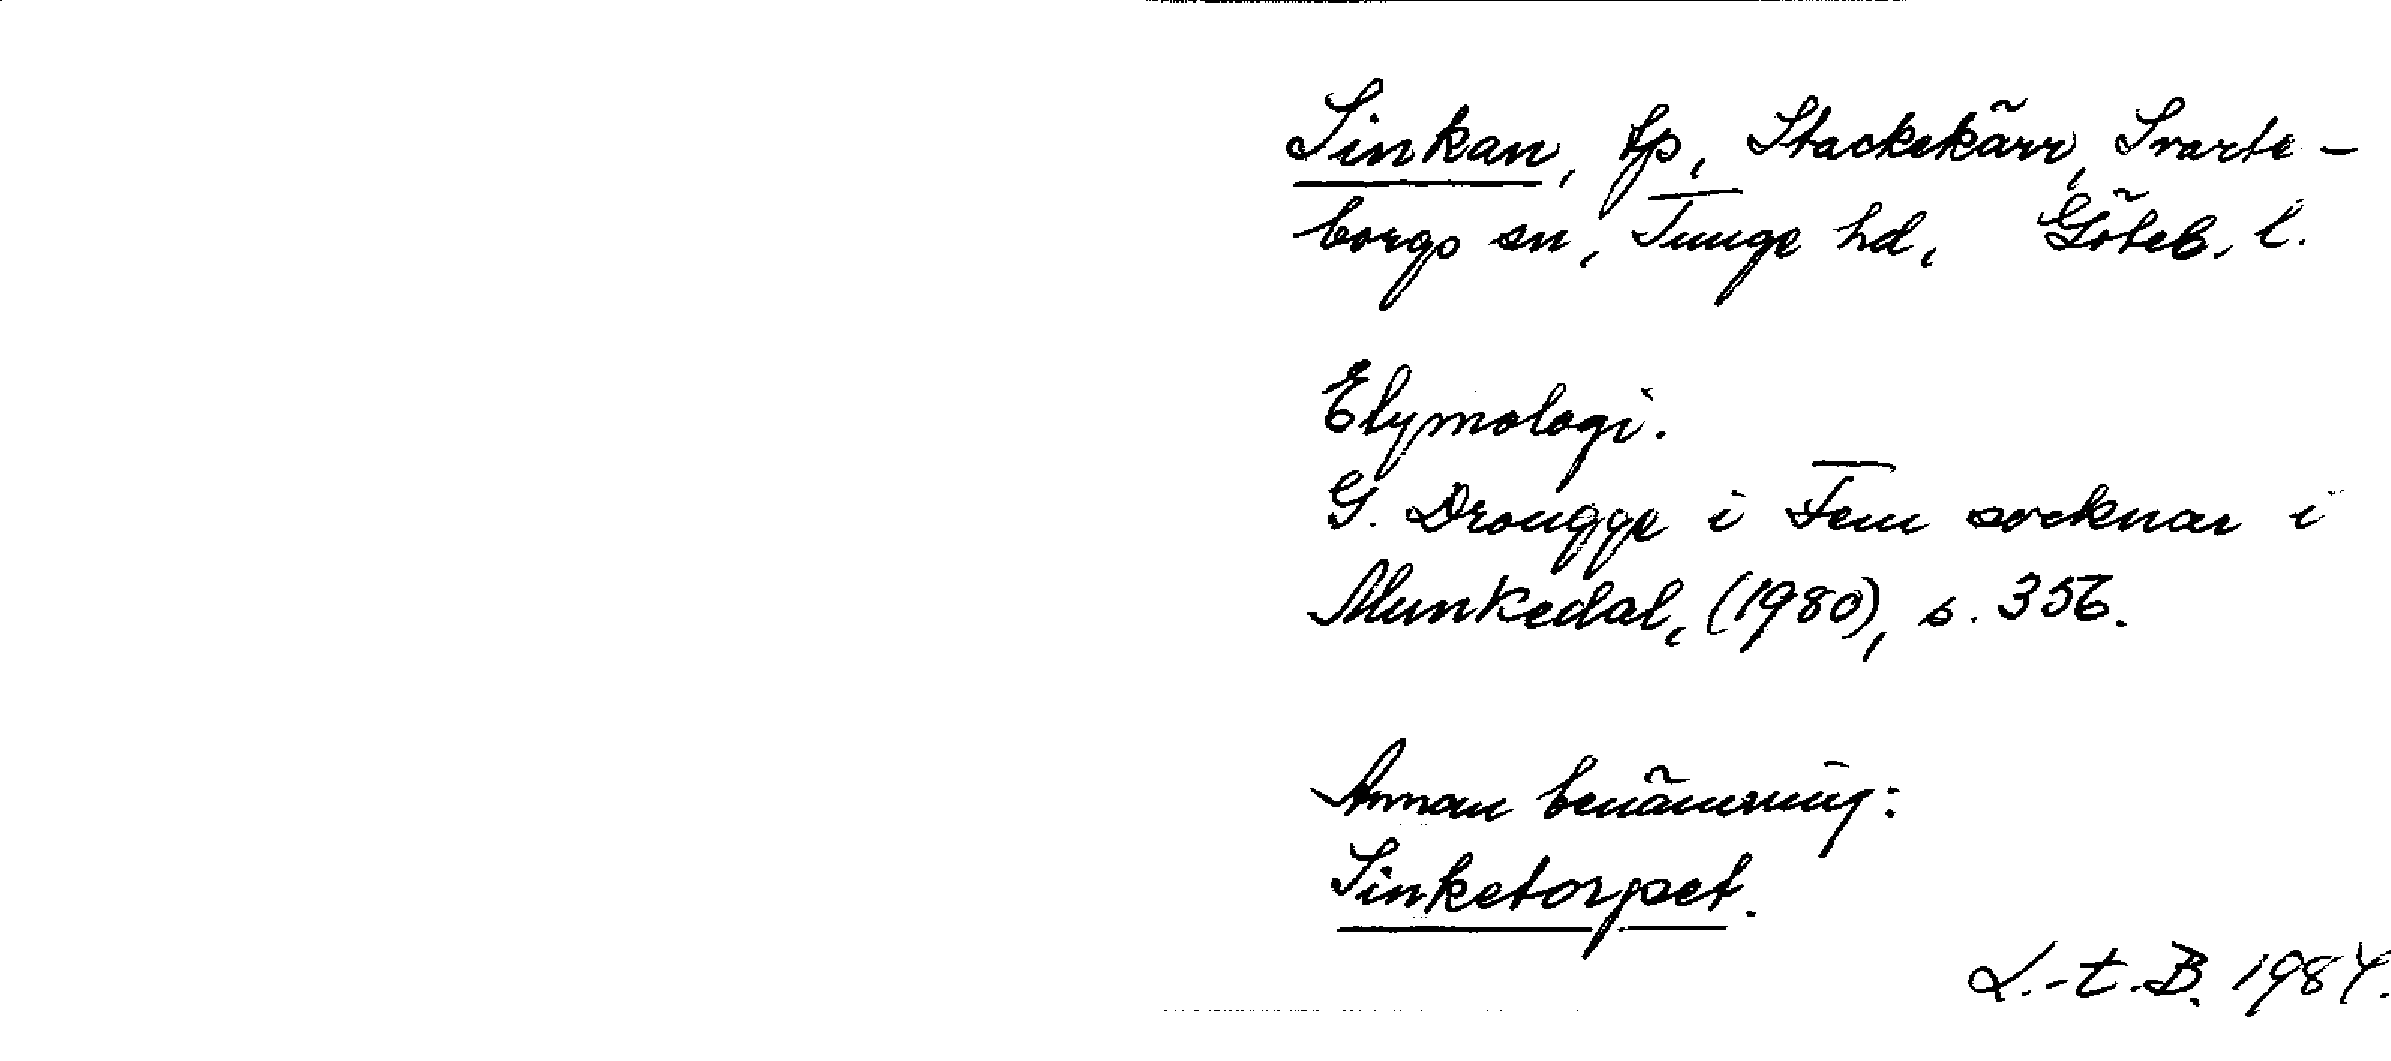 Sinkan, tp, Stackekärr, Svarte-
borgs sn, Tunge hd, Göteb. l.
Etymologi.
G. Drougge i Fem socknar i
Munkedal, (1980), s. 356.
Annan benämning:
Sinketorpet.
L.-t. B. 1984.